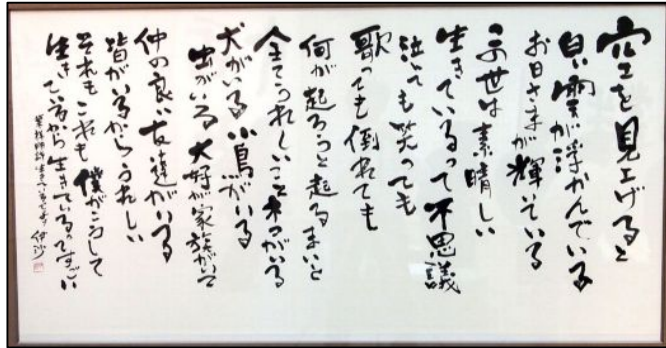 空を見上げると
白い雲が浮かんでいる
お日さまが輝いている
この世は素晴しい
生きているって不思議
泣いても笑っても
歌っても倒れても
何が起ろうと起るまいと
全てうれしいこと 木がいる
犬がいる 小鳥がいる
虫がいる 大好が家族がいて
仲の良い友達がいる
皆がいるからうれしい
それもこれも僕がこうして
生きているから 生きているってすごい